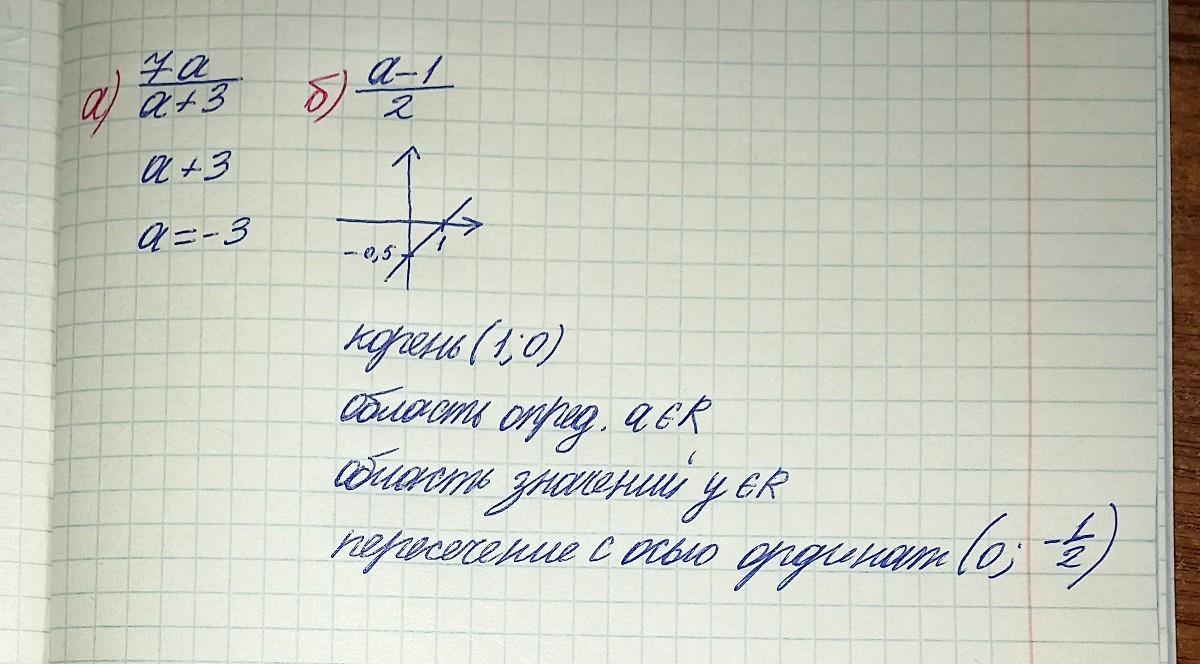 а) 7a/a+3
a+3
a=-3
б) a-1/2
-0,5
1
корень (1;0)
область опред. a∈R
область значений y∈R
пересечение с осью ординат (0; -1/2)